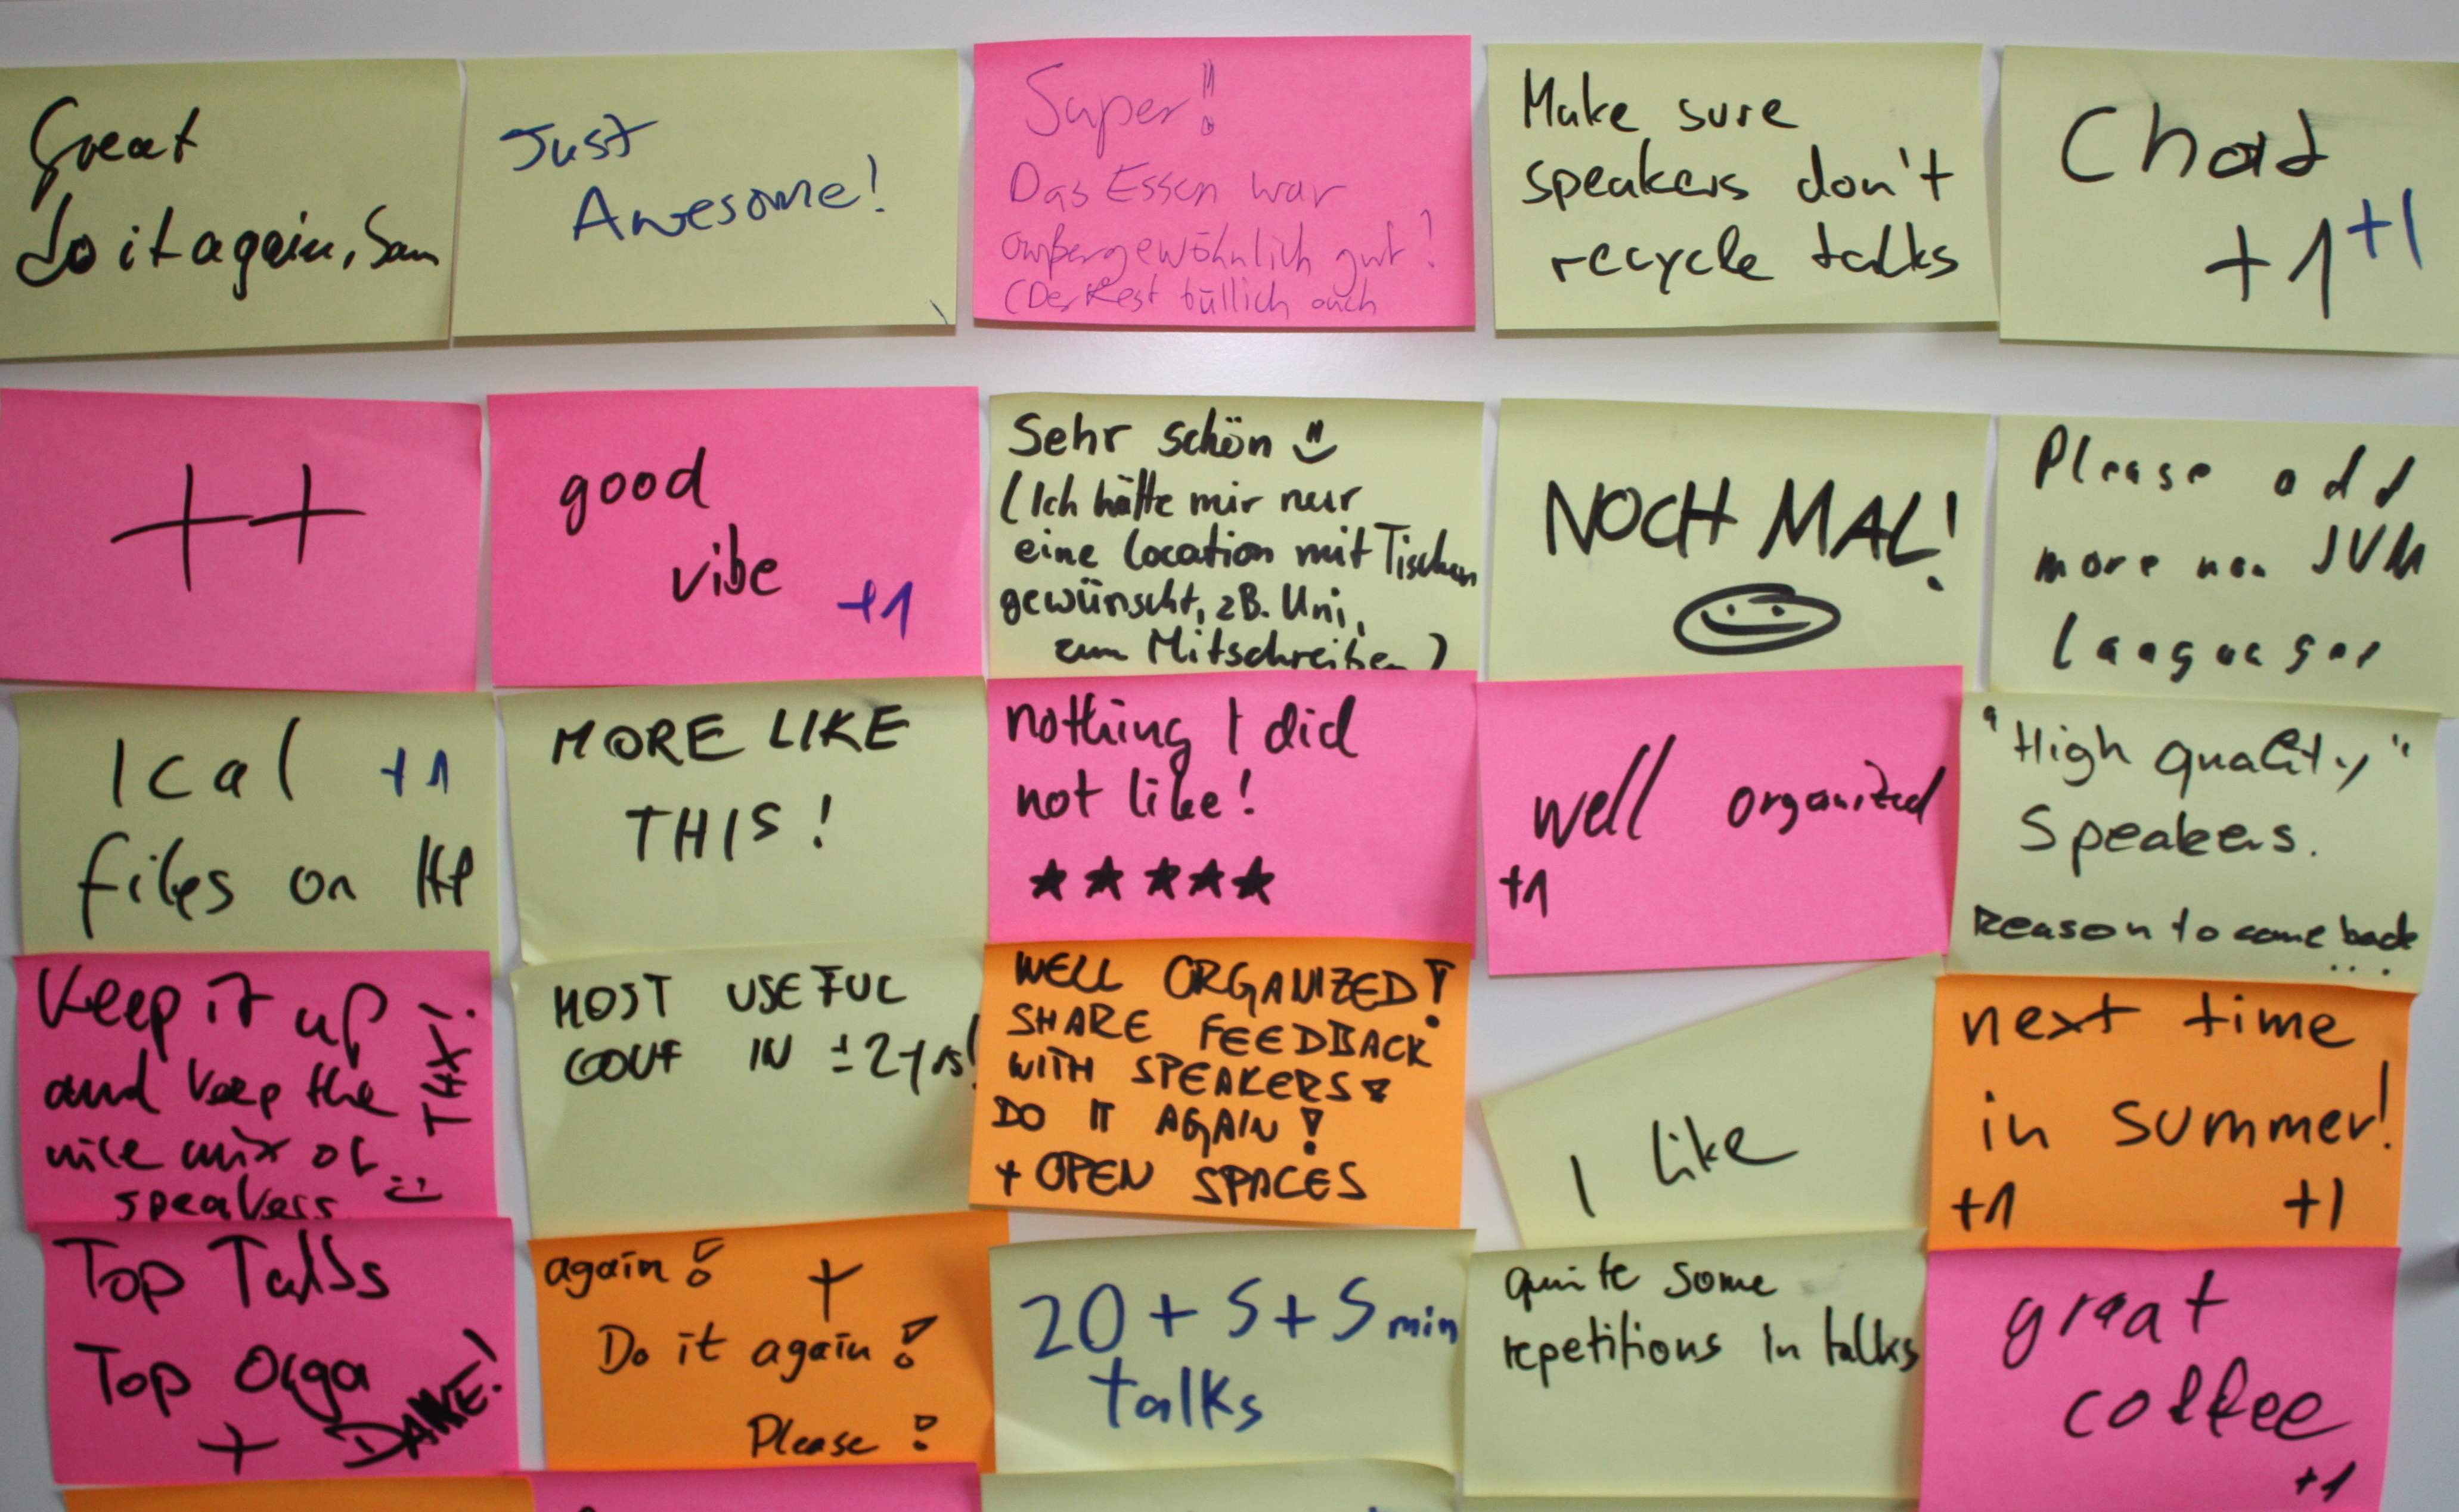 Great
do it again, Sam
Just
Awesome!
Super!!
Das Essen war
außergewöhnlich gut!
(Der Rest auch
Make sure
speakers don't
recycle talks
+1 +1
++
good
vibe +1
Sehr schön
(Ich hätte mir nur
eine Location mit Tischen
gewünscht, zB. Uni,
zum Mitschreiben)
NOCH MAL!
Please add
more non JVM
languages
Ical +1
files on HP
MORE LIKE
THIS!
nothing I did
not like!
★★★★★
well organized
+1
"High quality"
Speakers.
Reason to come back
...
Keep it up
and keep the
nice mix of
speakers :)
THX!
MOST USEFUL
CONF IN ±2yrs!
WELL ORGANIZED!
SHARE FEEDBACK
WITH SPEAKERS!
DO IT AGAIN!
+ OPEN SPACES
I like
next time
in summer!
+1 +1
Top Talks
Top Orga
+ DANKE!
again! +
Do it again!
Please!
20 + 5 + 5 min
talks
quite some
repetitions in talks
great
coffee
+1